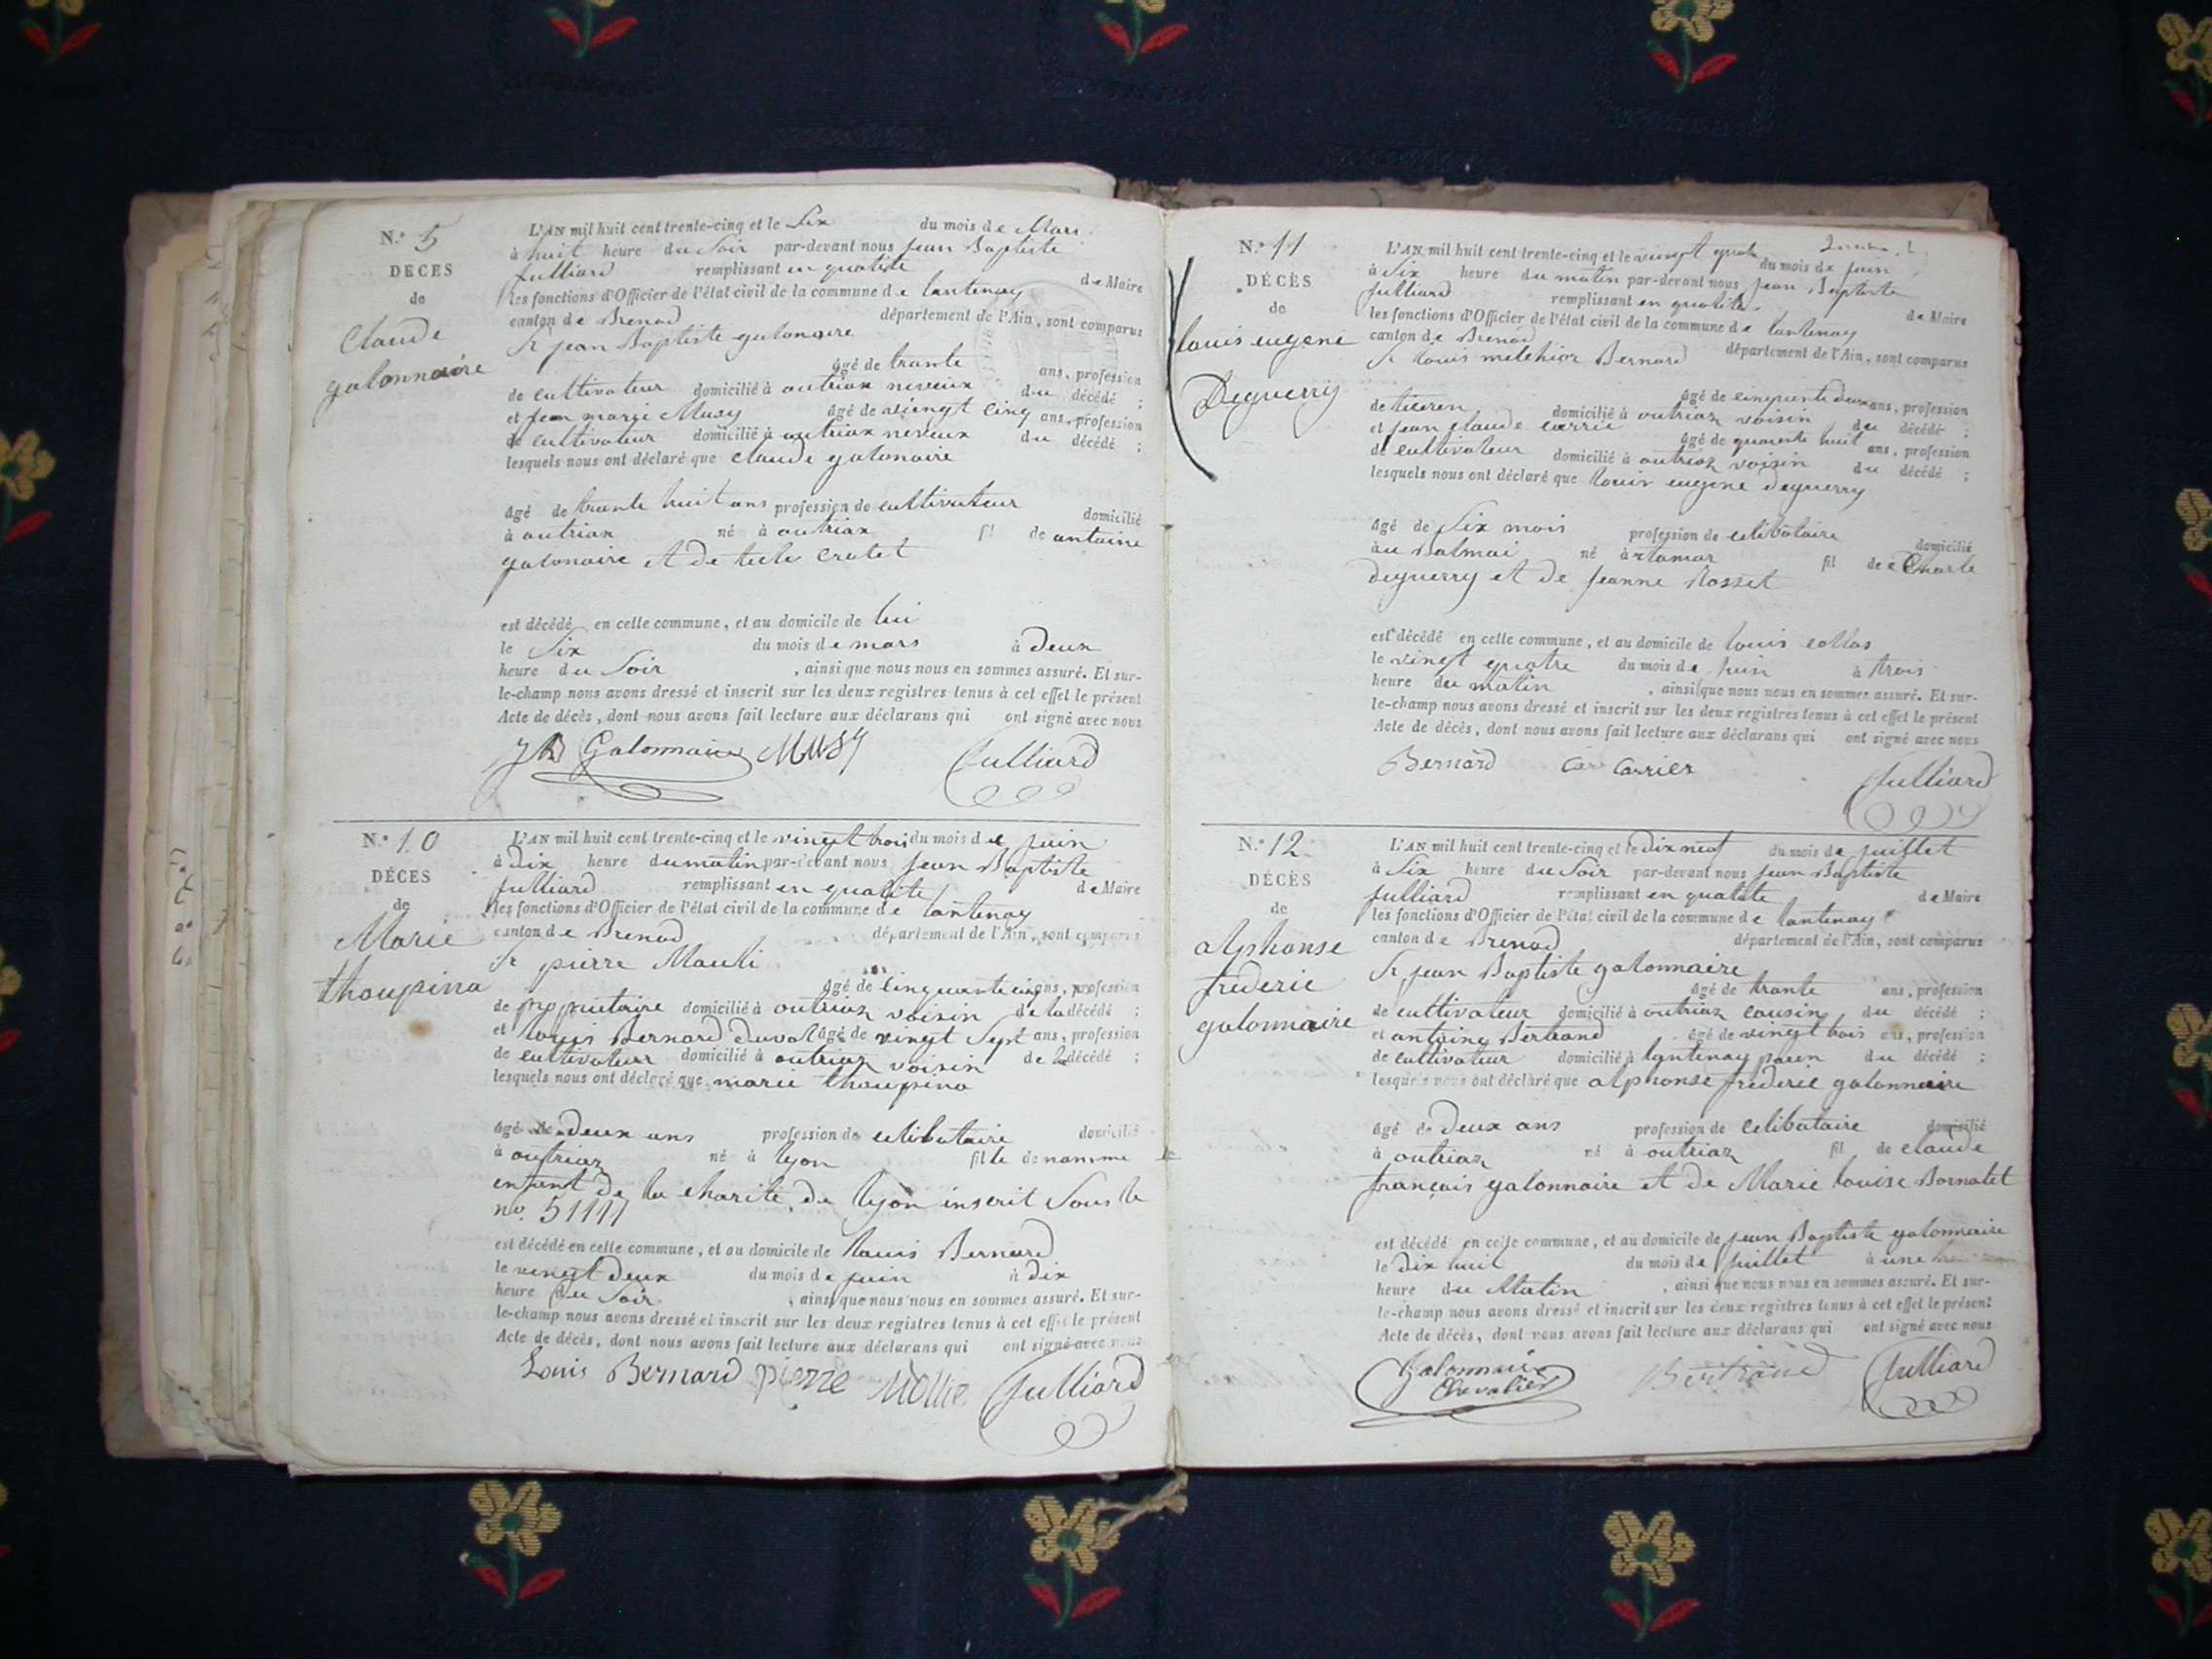 N.° 5
DECES
de
Claude
galonnaire
L'AN mil huit cent trente-cinq et le Six du mois de Mars
à huit heure du Soir par-devant nous jean Baptiste
julliard remplissant en qualité de Maire
les fonctions d'Officier de l'état civil de la commune de lantenay
canton de Brenod département de l'Ain, sont comparus
Sr jean Baptiste galonaire
âgé de trante ans, profession
de cultivateur domicilié à outriax neveux du décédé ;
et jean marie Musy âgé de viengt cinq ans, profession
de cultivateur domicilié à outriax neveux du décédé ;
lesquels nous ont déclaré que claude galonaire
âgé de trante huit ans profession de cultivateur domicilié
à outriax né à outriax fil de antoine
galonaire et de
est décédé en celle commune, et au domicile de lui
le Six du mois de mars à deux
heure du Soir , ainsi que nous nous en sommes assuré. Et sur-
le-champ nous avons dressé et inscrit sur les deux registres tenus à cet effet le présent
Acte de décès, dont nous avons fait lecture aux déclarans qui ont signé avec nous
JB Galonnaire MUSY Julliard
N.° 10
DÉCES
de
Marie
thoupina
L'AN mil huit cent trente-cinq et le vingt trois du mois de juin
à dix heure du matin par-devant nous jean Baptiste
julliard remplissant en qualité de Maire
les fonctions d'Officier de l'état civil de la commune de lantenay
canton de Brenod département de l'Ain, sont comparus
Sr pierre
âgé de cinquante cinq ans, profession
de propriétaire domicilié à outriaz voisin de la décédé ;
et louis Bernard duval âgé de vingt Sept ans, profession
de cultivateur domicilié à outriaz voisin de la décédé ;
lesquels nous ont déclaré que marie thoupina
âgé de deux ans profession de celibataire domicilié
à outriaz né à lyon fille de
enfant de la charité de lyon inscrit Sous le
no. 51111
est décédé en celle commune, et au domicile de louis Bernard
le vengt deux du mois de juin à dix
heure du Soir , ainsi que nous nous en sommes assuré. Et sur-
le-champ nous avons dressé et inscrit sur les deux registres tenus à cet effet le présent
Acte de décès, dont nous avons fait lecture aux déclarans qui ont signé avec nous
Louis Bernard pierre Julliard
N.° 11
DÉCÈS
de
louis eugene
Deguerry
L'AN mil huit cent trente-cinq et le vingt quatre du mois de juin
à Six heure du matin par-devant nous jean Baptiste
julliard remplissant en qualité de Maire
les fonctions d'Officier de l'état civil de la commune de lantenay
canton de Brenod département de l'Ain, sont comparus
Sr louis melchior Bernard
âgé de cinquante deux ans, profession
de domicilié à outriaz voisin du décédé ;
et jean claude carrier âgé de quarente huit ans, profession
de cultivateur domicilié à outriaz voisin du décédé ;
lesquels nous ont déclaré que louis eugene deguerry
âgé de Six mois profession de celibataire domicilié
né fil de Charle
deguerry et de jeanne Rosset
est décédé en celle commune, et au domicile de louis collas
le vingt quatre du mois de juin à trois
heure du matin , ainsi que nous nous en sommes assuré. Et sur-
le-champ nous avons dressé et inscrit sur les deux registres tenus à cet effet le présent
Acte de décès, dont nous avons fait lecture aux déclarans qui ont signé avec nous
Bernard Carrier Julliard
N.° 12
DÉCÈS
de
alphonse
frederic
galonnaire
L'AN mil huit cent trente-cinq et le dix neuf du mois de juillet
à Six heure du Soir par-devant nous jean Baptiste
julliard remplissant en qualité de Maire
les fonctions d'Officier de l'état civil de la commune de lantenay
canton de Brenod département de l'Ain, sont comparus
Sr jean Baptiste galonnaire
âgé de trante ans, profession
de cultivateur domicilié à outriaz cousin du décédé ;
et antoine Bertrand âgé de vingt trois ans, profession
de cultivateur domicilié à lantenay du décédé ;
lesquels nous ont déclaré que alphonse frederic galonnaire
âgé de deux ans profession de celibataire domicilié
à outriaz né à outriaz fil de claude
français galonnaire et de Marie louise Bornatet
est décédé en celle commune, et au domicile de jean Baptiste galonnaire
le dix huit du mois de juillet à une
heure du Matin , ainsi que nous nous en sommes assuré. Et sur-
le-champ nous avons dressé et inscrit sur les deux registres tenus à cet effet le présent
Acte de décès, dont nous avons fait lecture aux déclarans qui ont signé avec nous
Galonnaire Bertrand Julliard
Chevalier